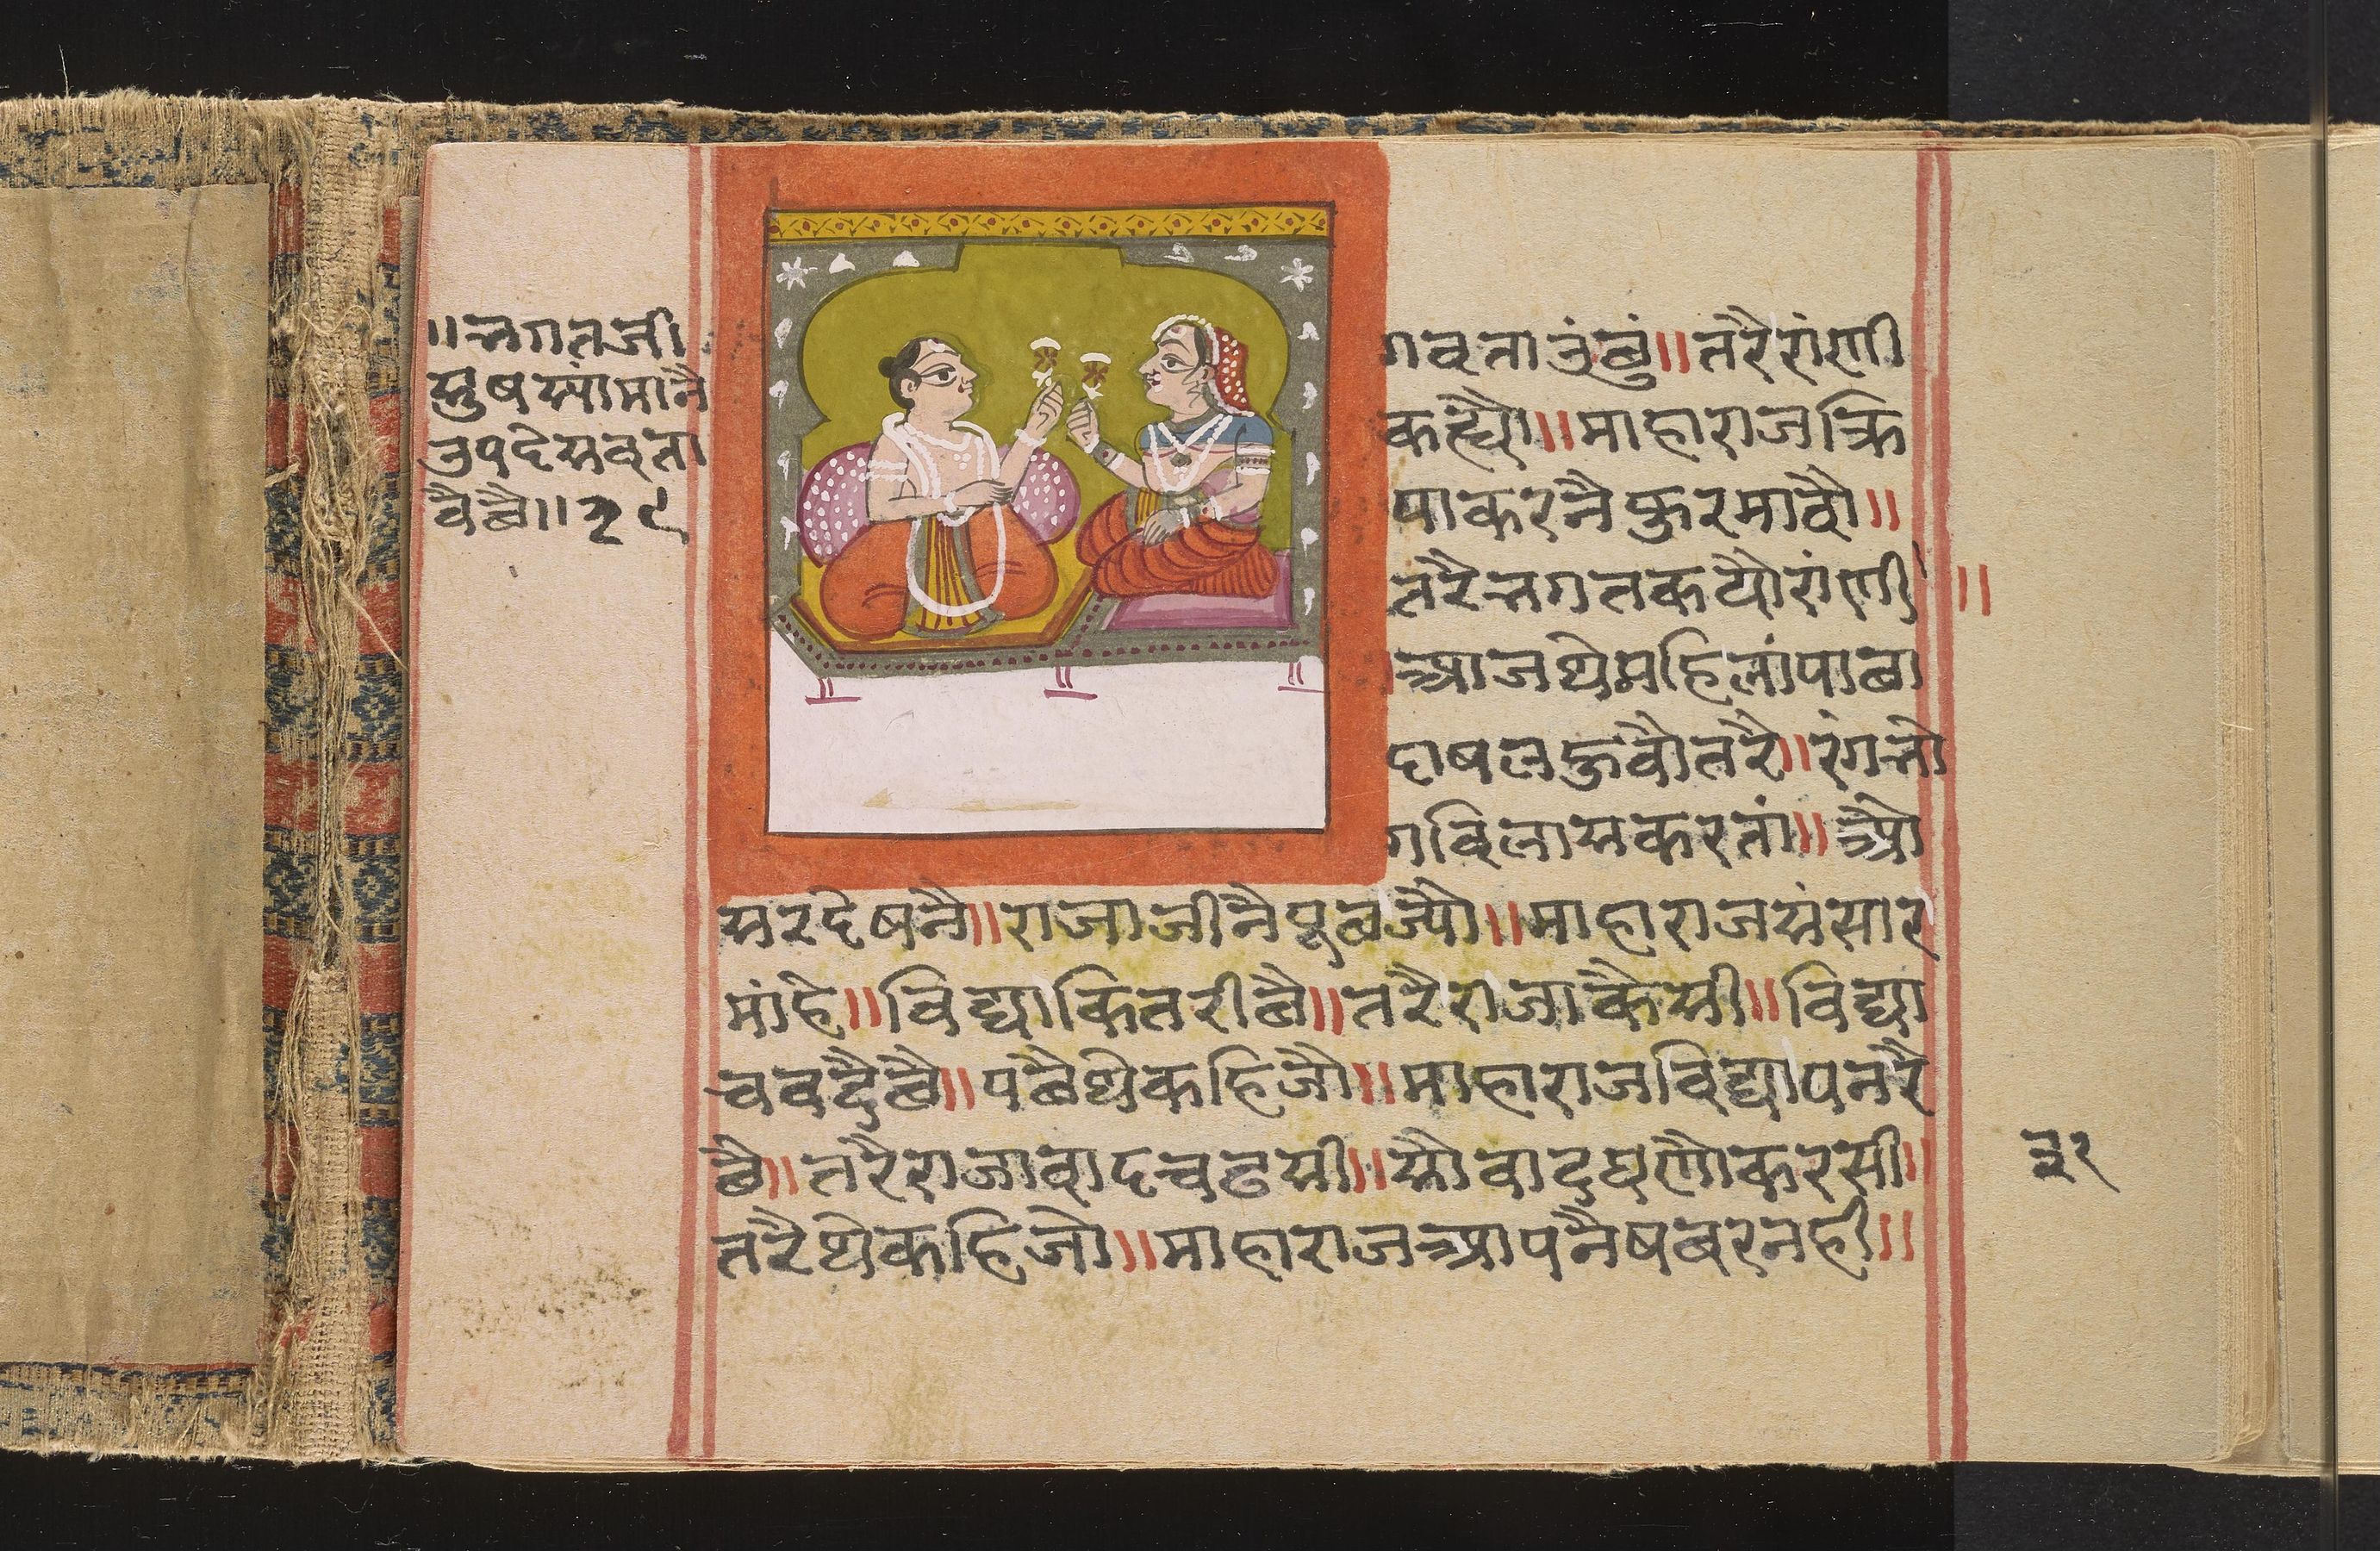 ॥भगतजी
सुषसांमानै
उपदेसबता
वैछै॥२९
गवताउंछुं॥तरैरांणी
कह्यौ॥माहाराजक्रि
पाकरनैफुरमावौ॥
तरैभगतकयौरांणी॥
आजथेमहिलांपाछा
दाषलहुवौतरै॥रंगभो
गविलासकरतां॥औ
सरदेषनै॥राजाजीनैपूछज्यौ॥माहाराजसंसार
मांहे॥विद्याकितरीछै॥तरैराजाकैसी॥विद्या
चवदैछै॥पछैथेकहिजौ॥माहाराजविद्यापनरै
छै॥तरैराजावादचढसी॥सौवादघणौकरसी॥
तरैथेकहिजो॥माहाराजआपनैषबरनही॥
३१